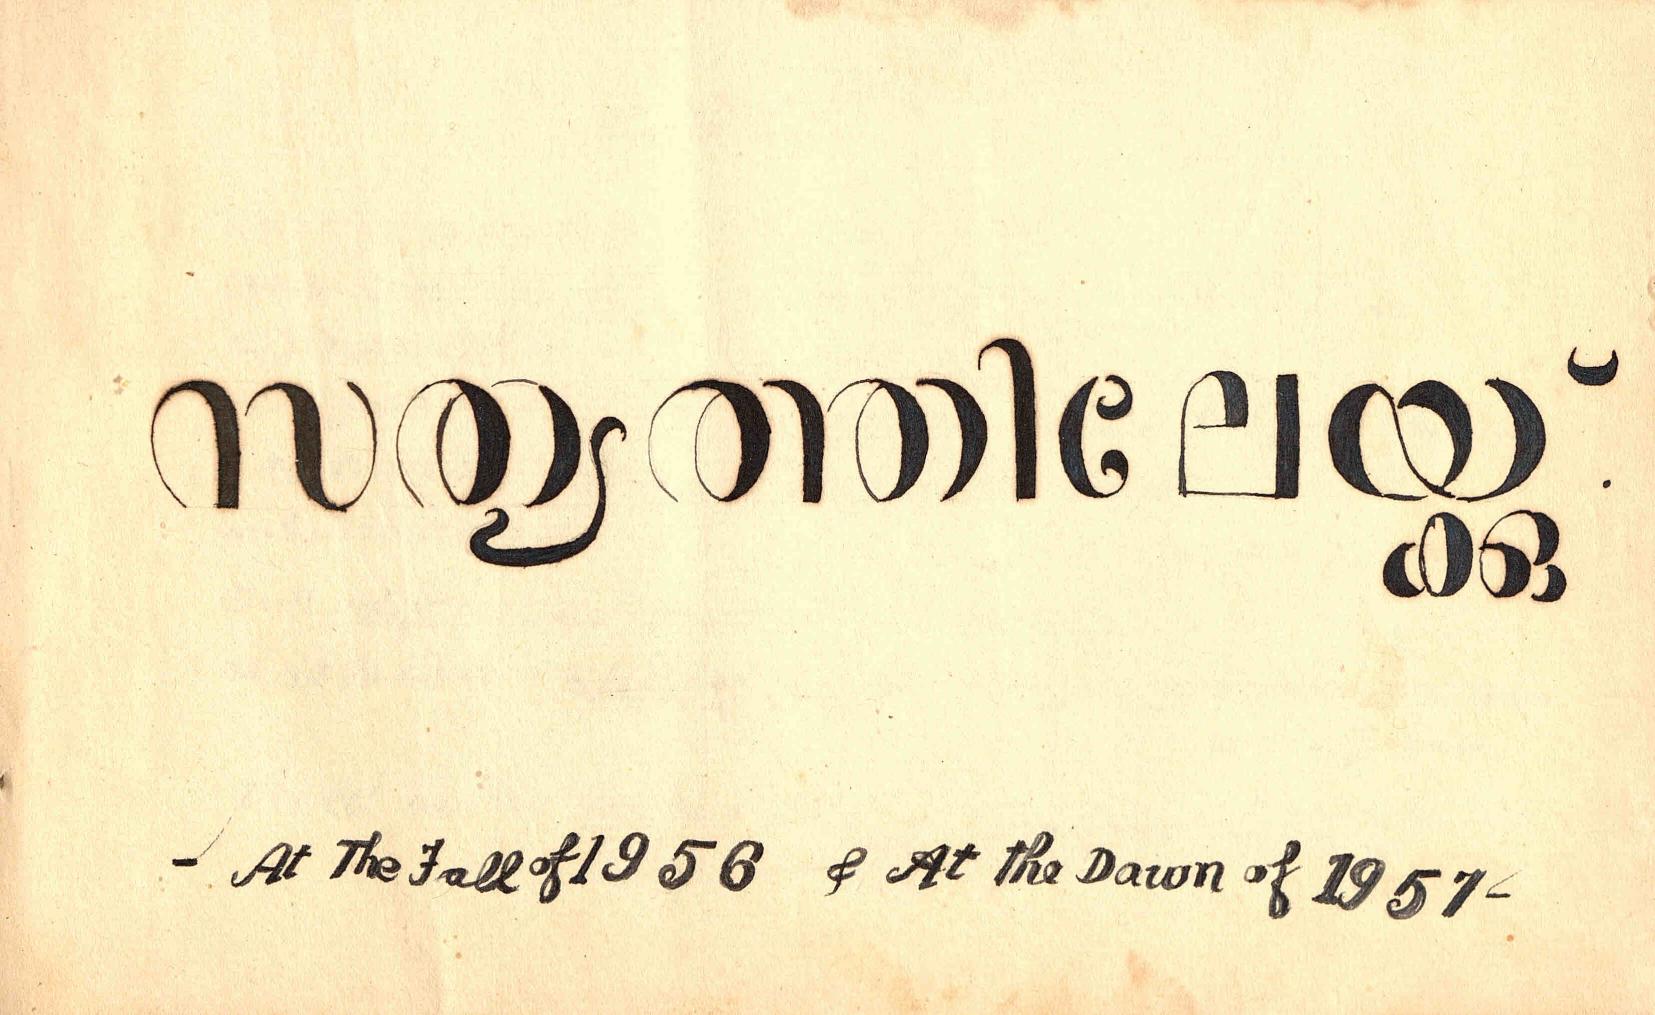 സത്യത്തിലേയ്ക്കു് .
- At The Fall of 1956 & At the Dawn of 1957 -